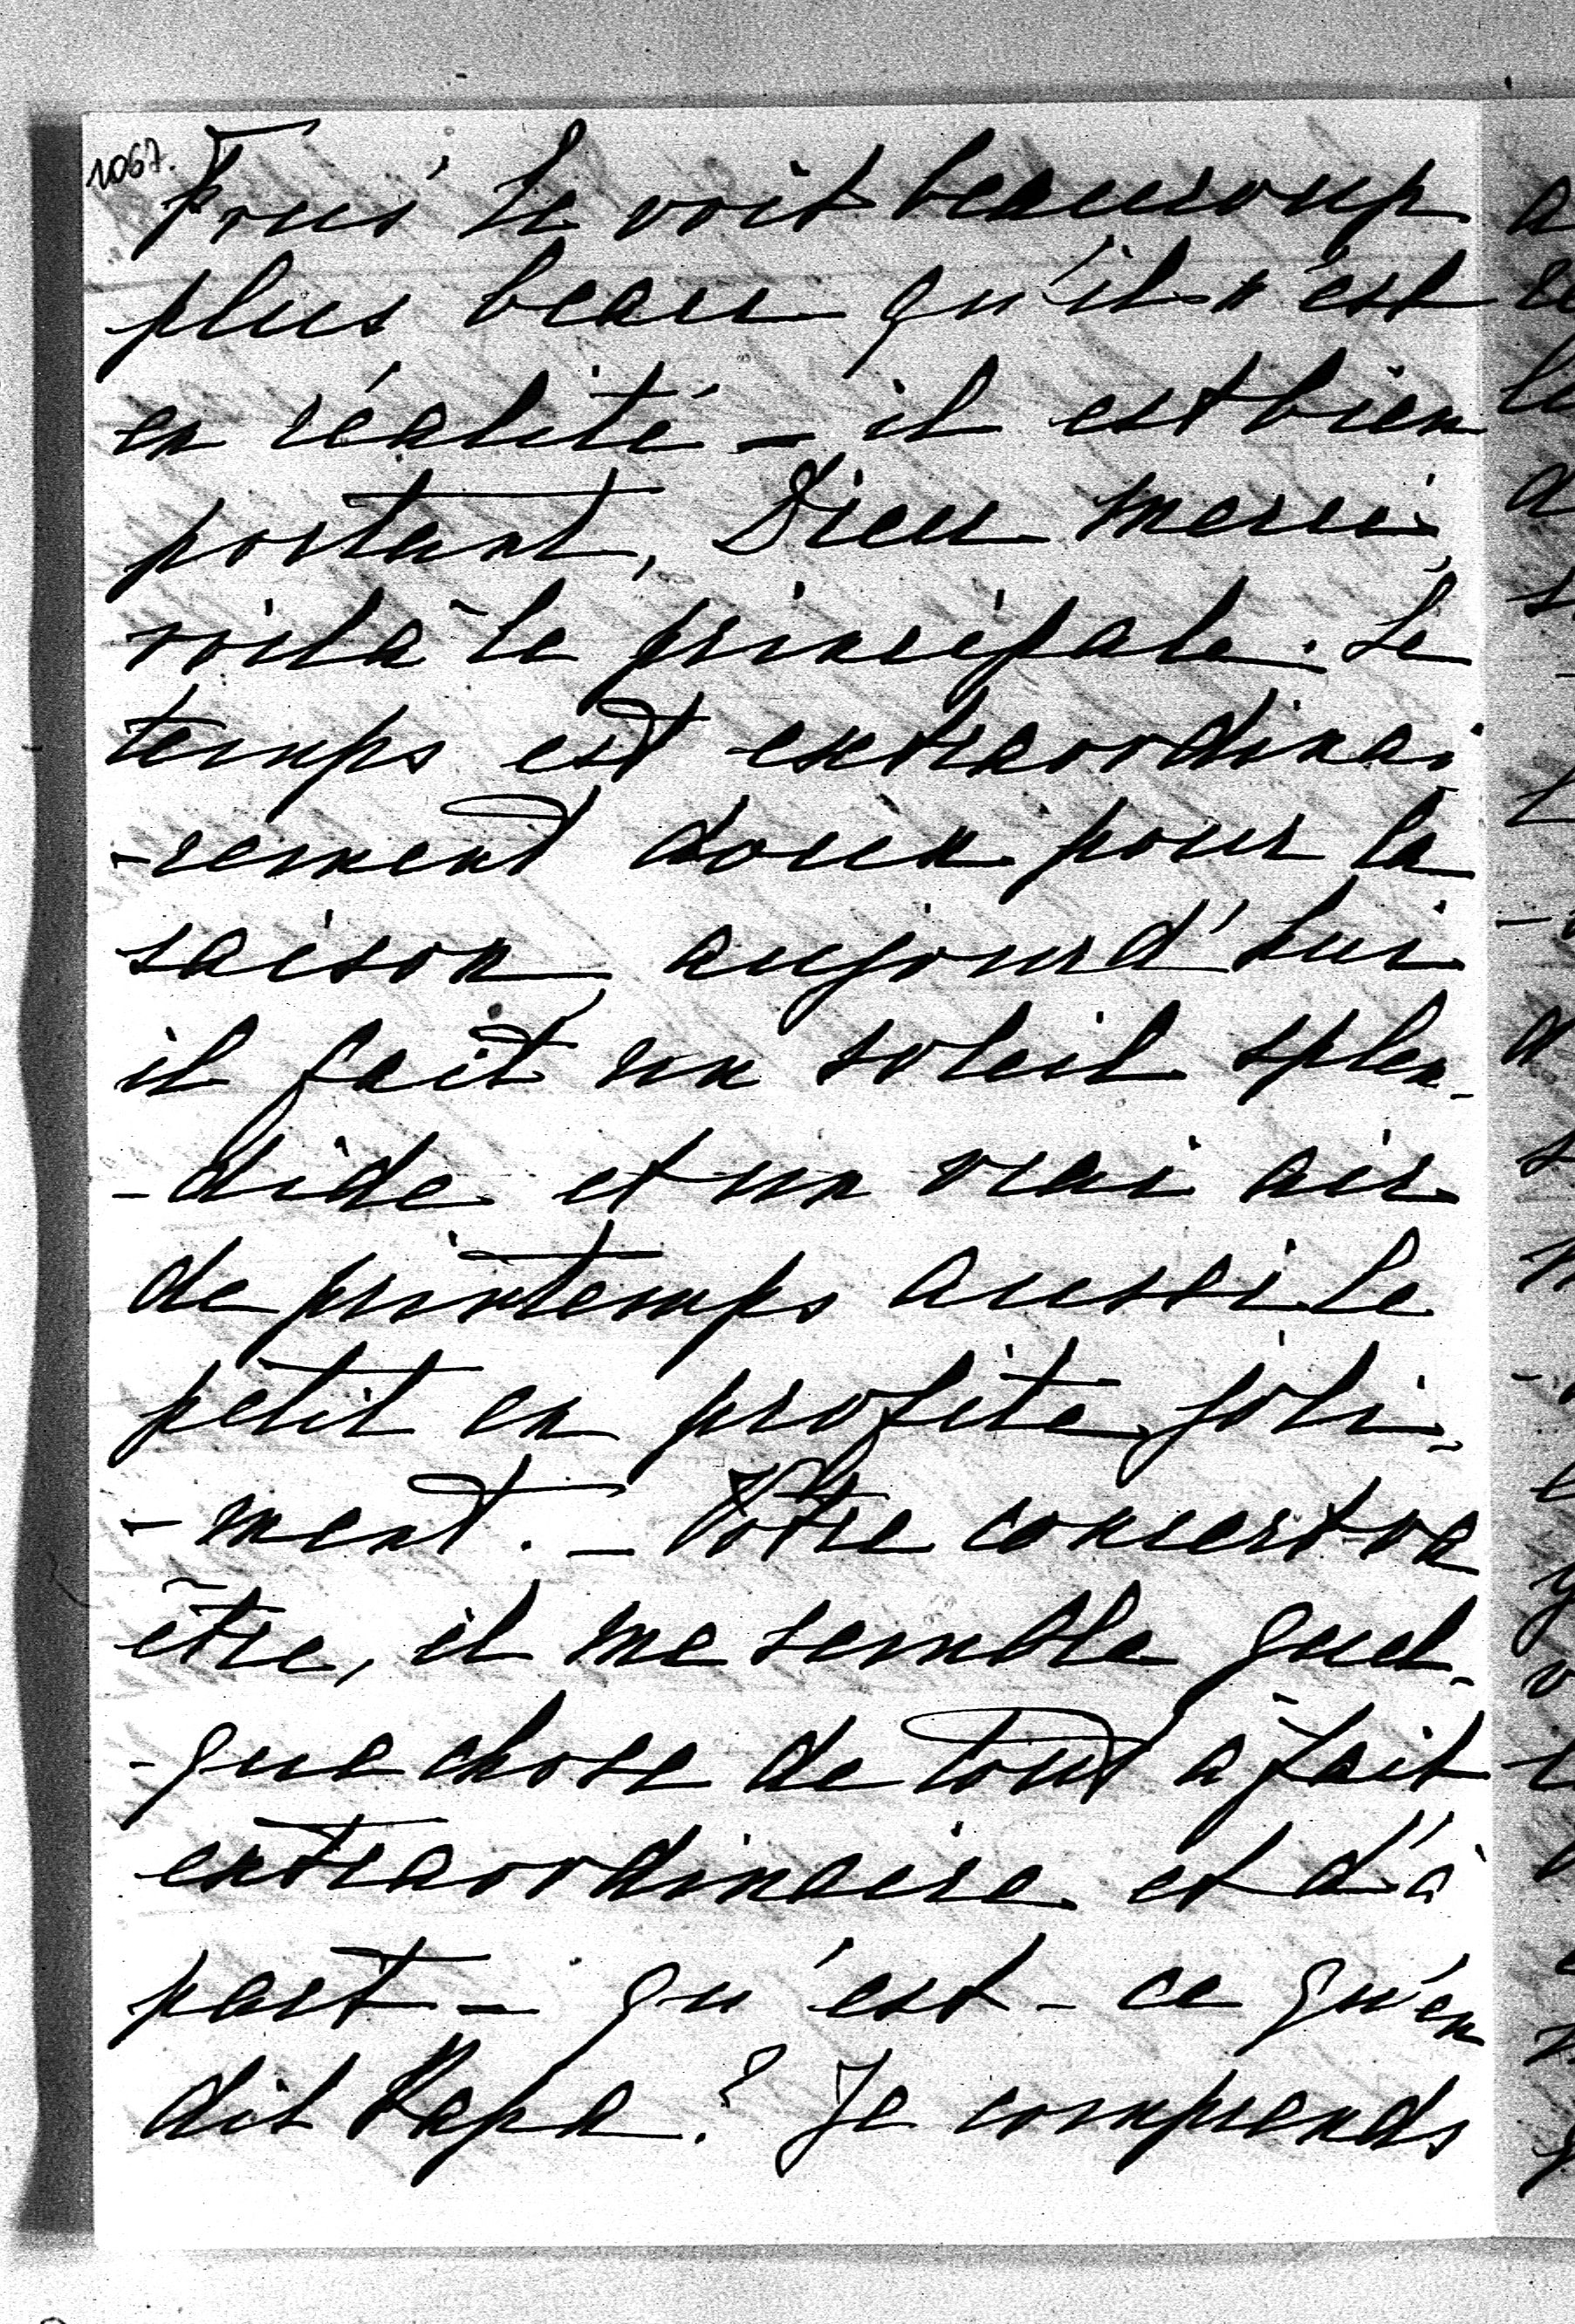 1067.
Fous le voit beaucoup
plus beau qu'il n'est
en réalité – il est bien
portant, Dieu merci,
voilà le principale. Le
temps est extraordinai
-rement doux pour la
saison, aujourd'hui
il fait un soleil splen-
-dide et un vrai air
de printemps aussi le
petit en profite joli-
-ment. – Votre concert va
être, il me semble quel-
-que chose de tout à fait
extraordinaire et d'à
part – qu'est-ce qu'en
dit Papa? Je comprends